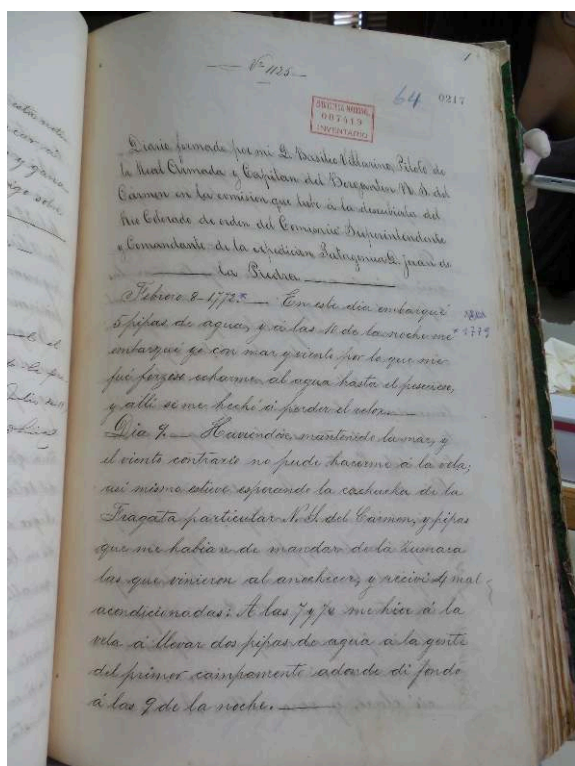 Nº 1125
1
64 0217
BIBLIOTECA NACIONAL
007419
INVENTARIO
Diario formado por mi D. Basilio Villarino, Piloto de
la Real Armada y Capitan del Bergantin N. S. del
Carmen en la comision que tube á la descubierta del
Rio Colorado de orden del Comisario Superintendente
y Comandante de la espedicion Patagonica D. Juan de
la Piedra
Febrero 8-1772.* En este dia embarqué
5 pipas de agua, y á las 10 de la noche me
* 1779
embarqué yo con mar y viento por lo que me
fué forzoso echarme al agua hasta el pescuezo,
y alli se me hechó á perder el relox.
Dia 9. Haviendose mantenido la mar, y
el viento contrario no pude hacerme á la vela;
asi mismo estuve esperando la cachucha de la
Fragata particular N. S. del Carmen, y pipas
que me habian de mandar de la Zumaca
las que vinieron al anochecer, y recivi 4 mal
acondicionadas: A las 7 y ½ me hice á la
vela á llevar dos pipas de agua á la gente
del primer campamento adonde di fondo
á las 9 de la noche.